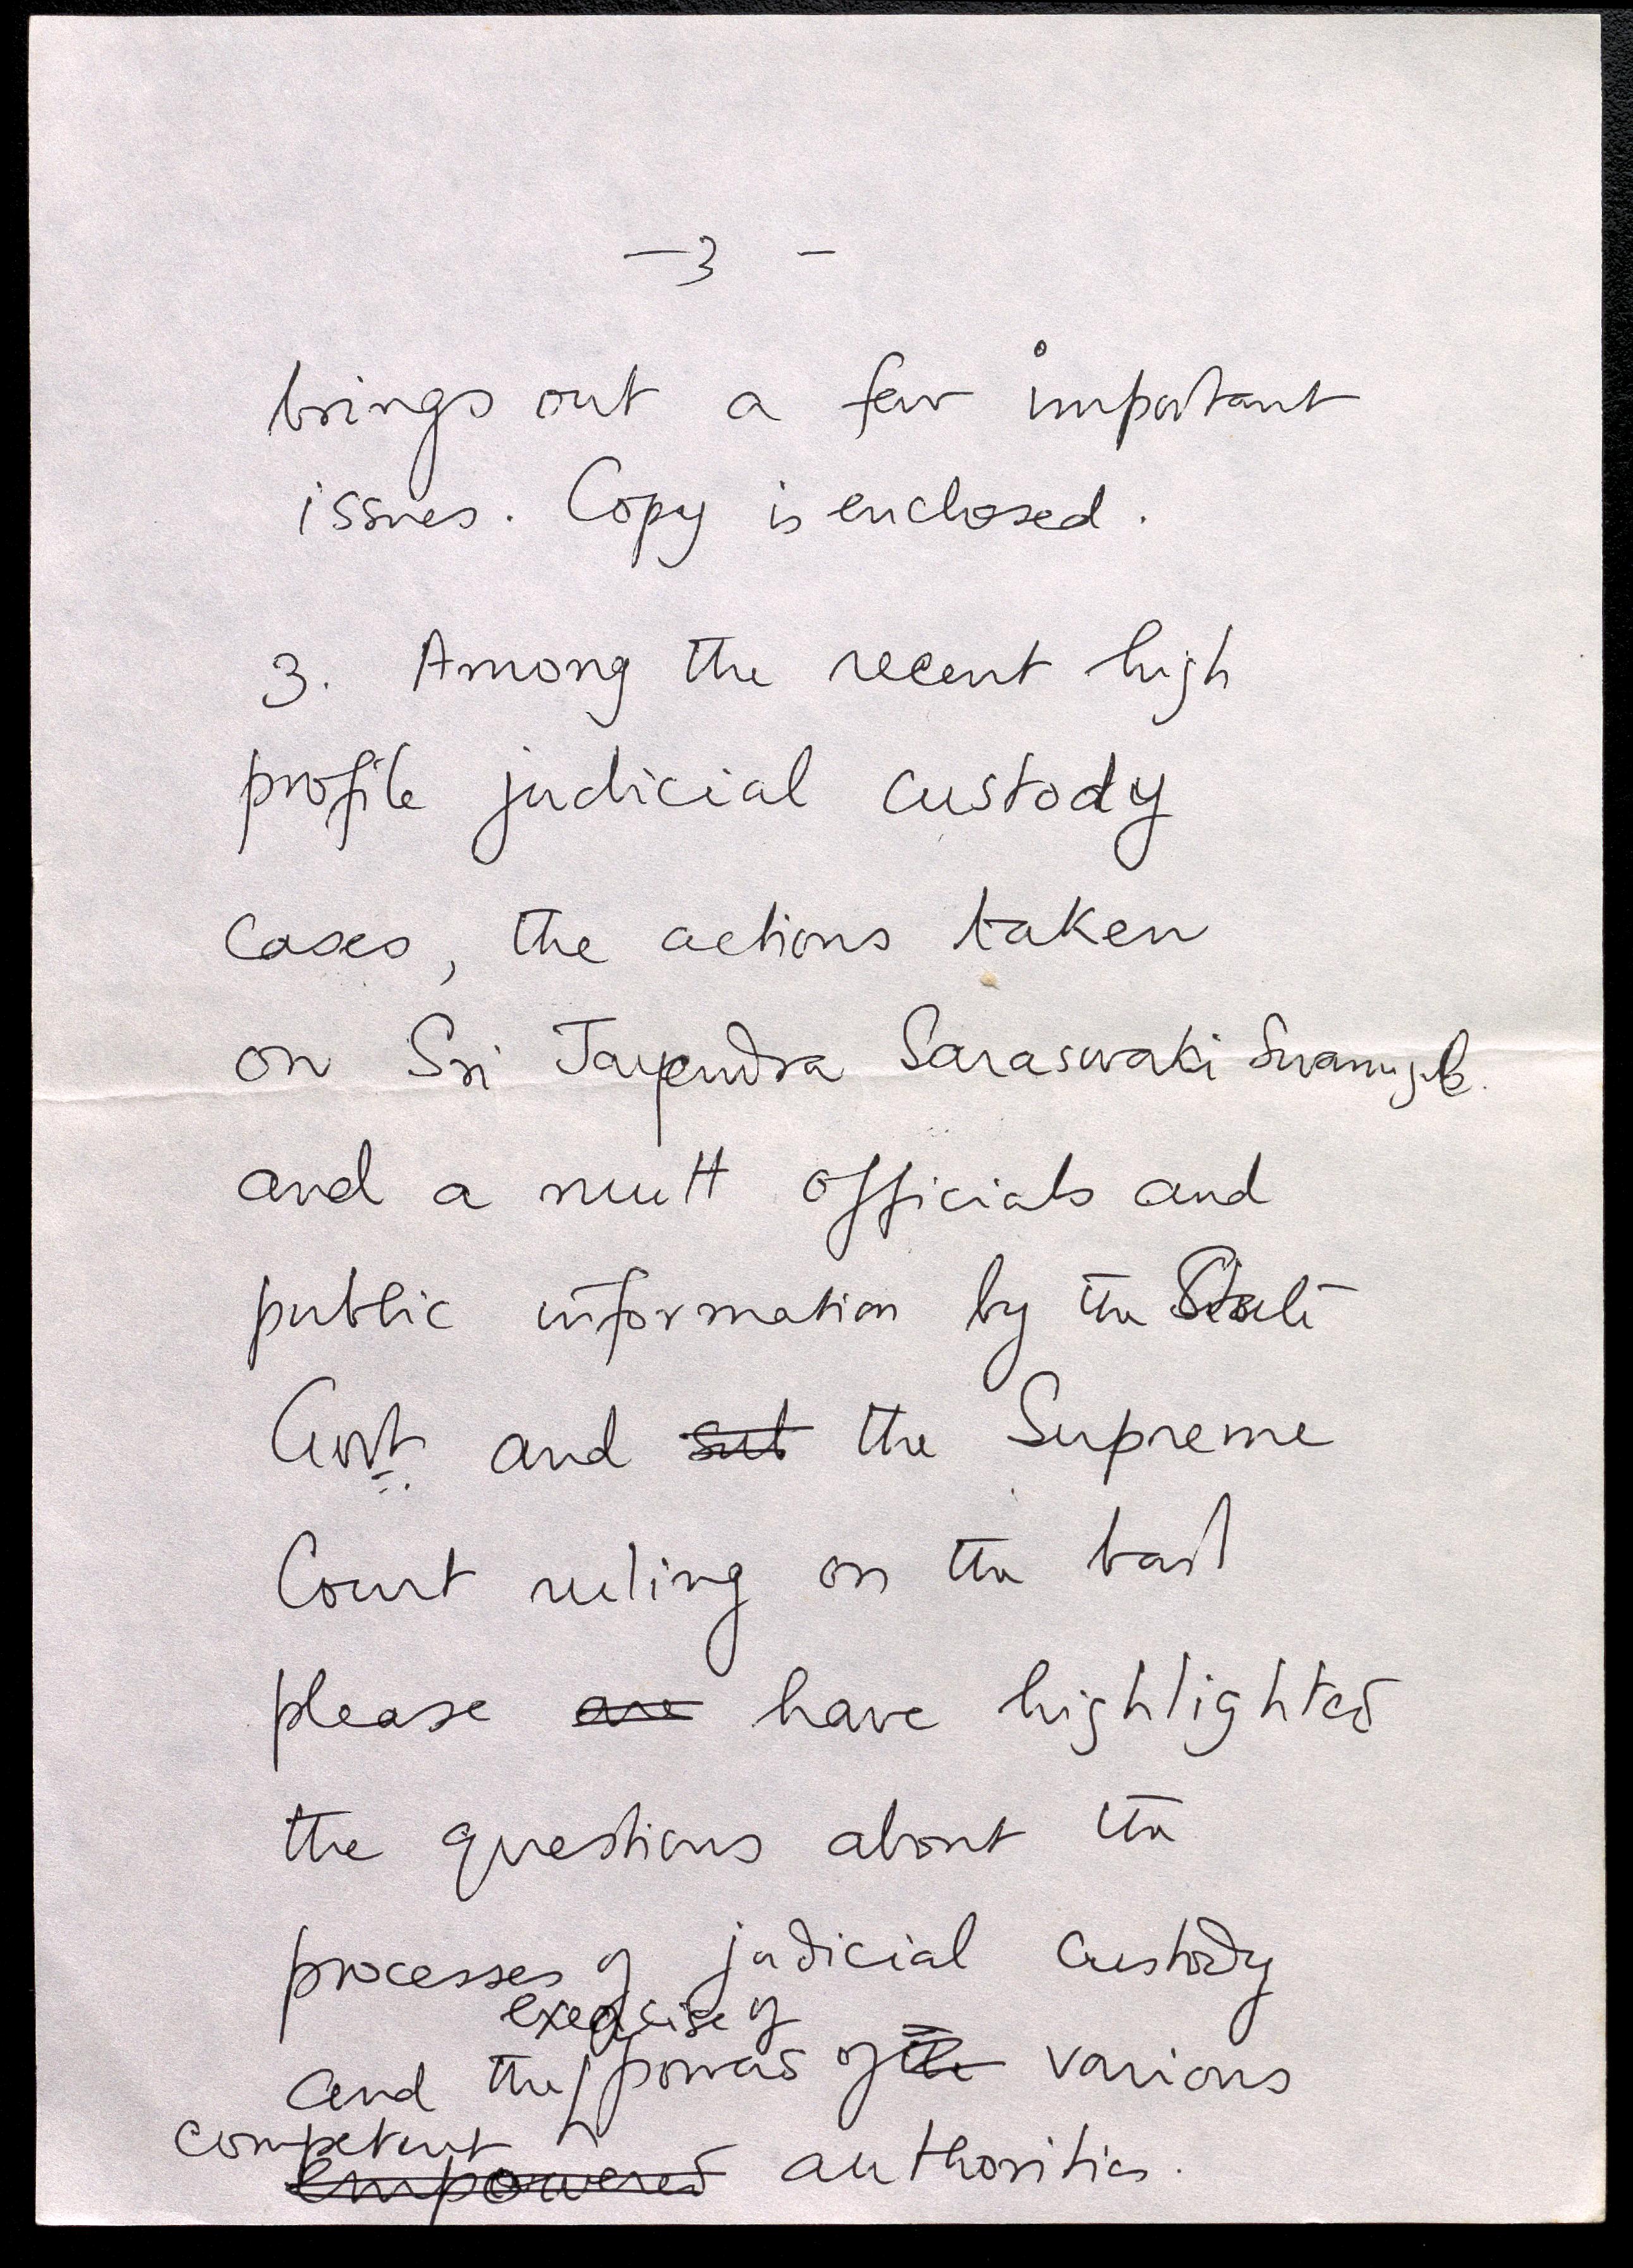 - 3 -
brings out a few important
issues. Copy is enclosed.
3. Among the recent high
profile judicial custody
cases, the actions taken
on Sri Jayendra Saraswati
and a mutt officials and
public information by the State
Govt. and sub the Supreme
Court ruling on the bail
please are have highlighted
the questions about the
processes of judicial custody
exercise of
and the powers of the various
competent
empowered authorities.